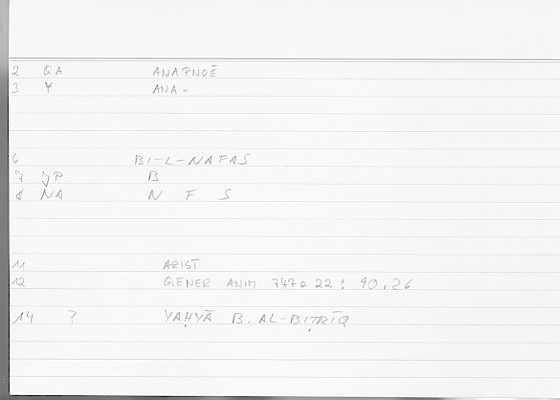 2 QA ANAPNOĒ
3 Y ANA-
6 BI-L-NAFAS
7 JP B
8 NA N F S
11 ARIST
12 GENER ANIM 747a 22 : 90,26
14 ? YAḤYĀ B. AL-BIṬRĪQ